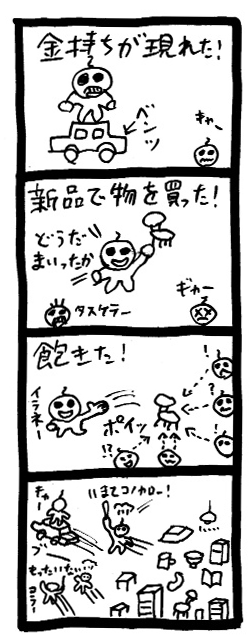 金持ちが現れた!
ベンツ
キャー
新品で物を買った!
どうだ!!
まいったか
ギャー
タスケテー
飽きた!
イラネー
ポイッ
!
?
!
!?
!
キャー
いまてコノヤロー!
ブー
もったいたい
コラー